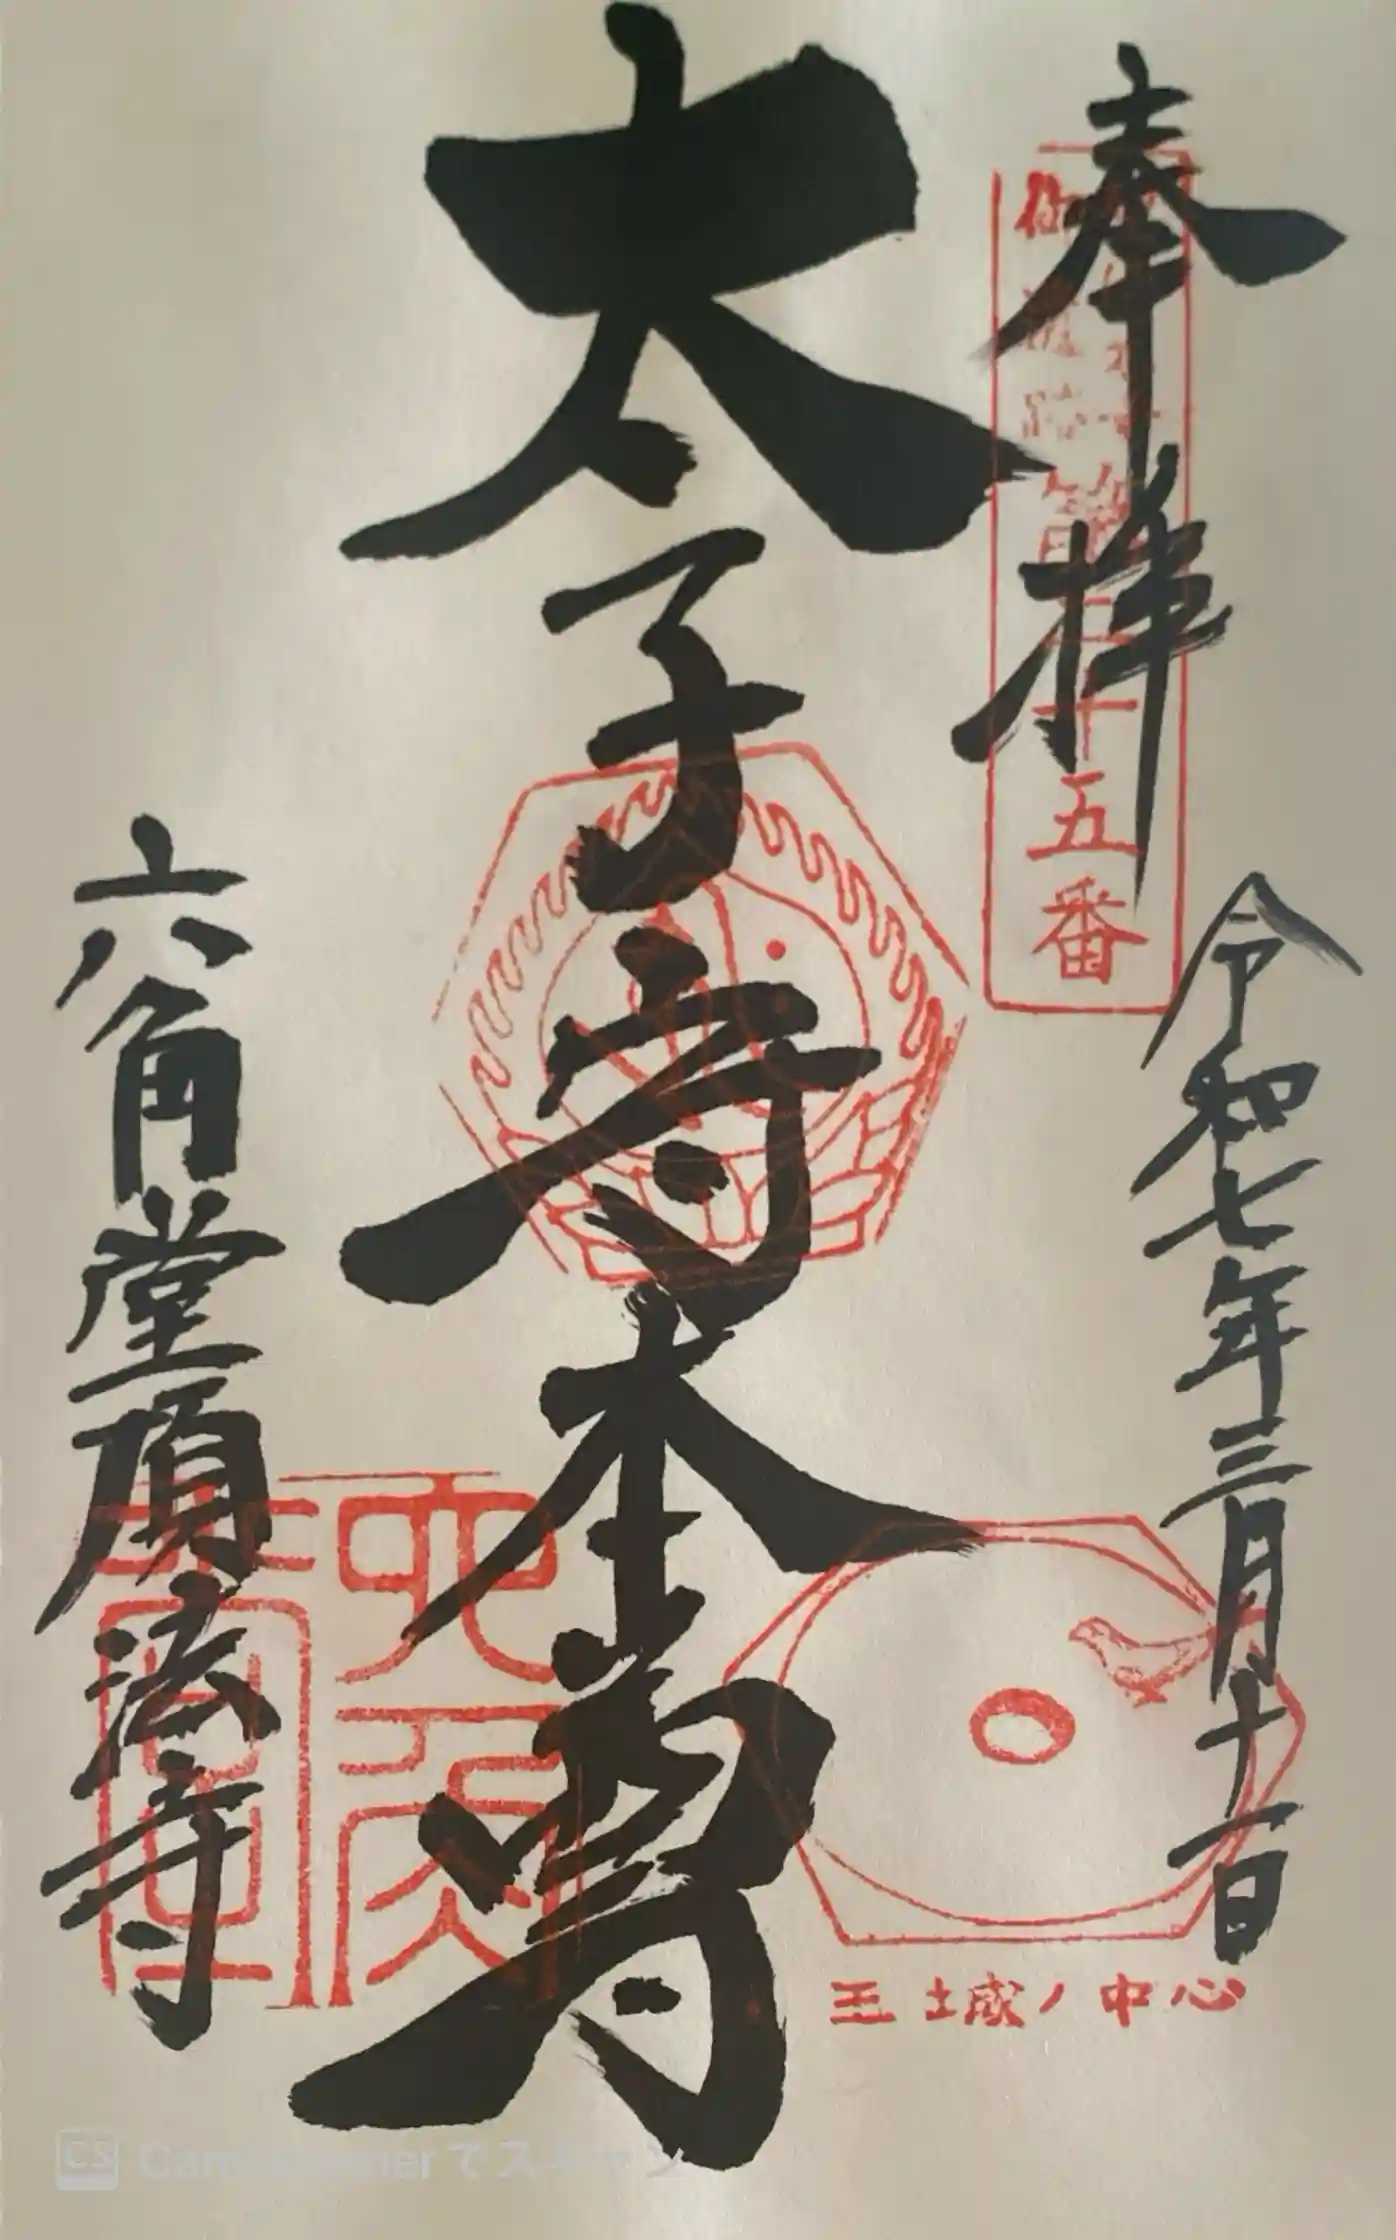 奉拝
令和七年三月十一日
十五番
太子守本尊
六角堂頂法寺
王城ノ中心
CS CamScannerでスキャン